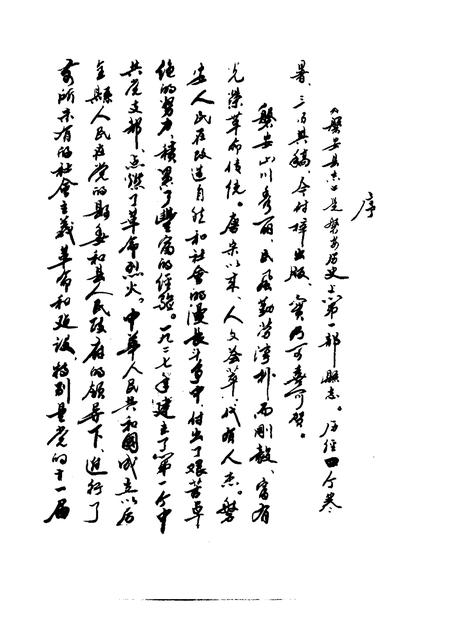 序
《磐安县志》是磐安历史上第一部县志。历经四个寒
暑、三易其稿，今付梓出版，实乃可喜可贺。
磐安山川秀丽，民风勤劳淳朴而刚毅，富有
光荣革命传统。唐宋以来，人文荟萃，代有人杰。磐
安人民在改造自然和社会的漫长斗争中，付出了艰苦卓
绝的努力，积累了豐富的经验。一九二七年建立了第一个中
共党支部，点燃了革命烈火。中華人民共和國成立以后
全縣人民在党的縣委和县人民政府的领导下，进行了
前所未有的社會主義革命和建设，特别是党的十一届